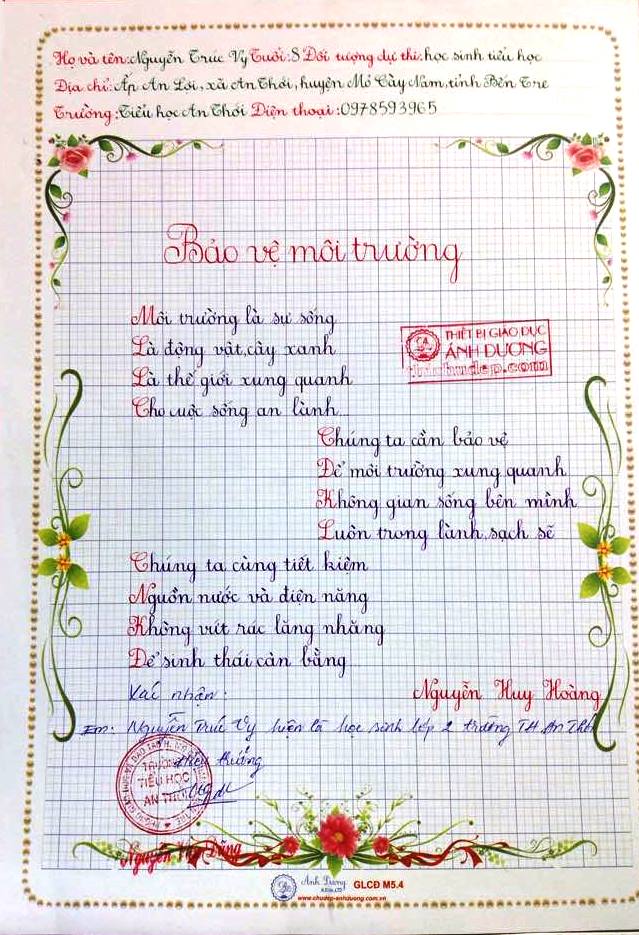 Họ và tên: Nguyễn Trúc Vy Tuổi: 8 Đối tượng dự thi: học sinh tiểu học
Địa chỉ: Ấp An Lới, xã An Thới, huyện Mỏ Cày Nam, tỉnh Bến Tre
Trường: Tiểu học An Thới Điện thoại: 0978593965
Bảo vệ môi trường
Môi trường là sự sống
THIẾT BỊ GIÁO DỤC
Là động vật, cây xanh
ÁNH DƯƠNG
Là thế giới xung quanh
Cho cuộc sống an lành
Chúng ta cần bảo vệ
Để môi trường xung quanh
Không gian sống bên mình
Luôn trong lành, sạch sẽ
Chúng ta cùng tiết kiệm
Nguồn nước và điện năng
Không vứt rác lăng nhăng
Để sinh thái cân bằng
Nguyễn Huy Hoàng
Xác nhận:
Em: Nguyễn Trúc Vy hiện là học sinh lớp 2 trường TH. An Thới
Hiệu trưởng
TRƯỜNG
TIỂU HỌC
AN THỚI
Nguyễn Văn Dũng
Ánh Dương
GLCĐ M5.4
www.chudep-anhduong.com.vn